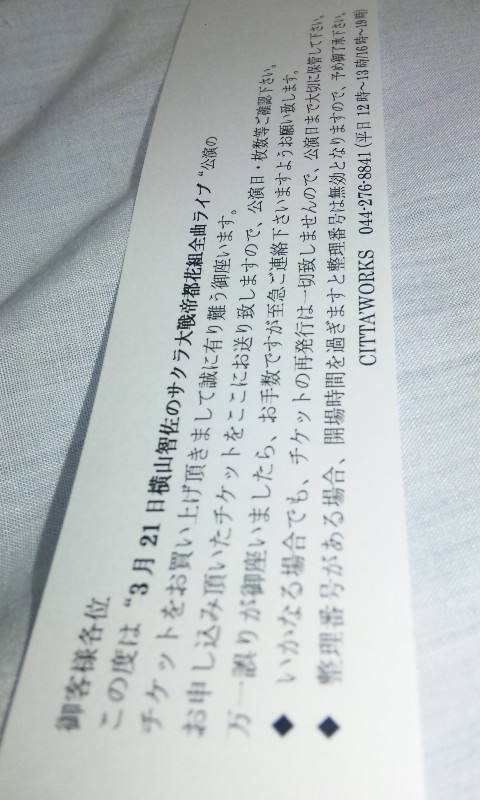 御客様各位
この度は“3月21日横山智佐のサクラ大戦帝都花組全曲ライブ“公演の
チケットをお買い上げ頂きまして誠に有り難う御座います。
お申し込み頂いたチケットをここにお送り致しますので、公演日・枚数等ご確認下さい。
万一誤りが御座いましたら、お手数ですが至急ご連絡下さいますようお願い致します。
◆ いかなる場合でも、チケットの再発行は一切致しませんので、公演日まで大切に保管して下さい。
◆ 整理番号がある場合、開場時間を過ぎますと整理番号は無効となりますので、予め御了承下さい。
CITTA'WORKS 044-276-8841(平日12時～13時/16時～19時)